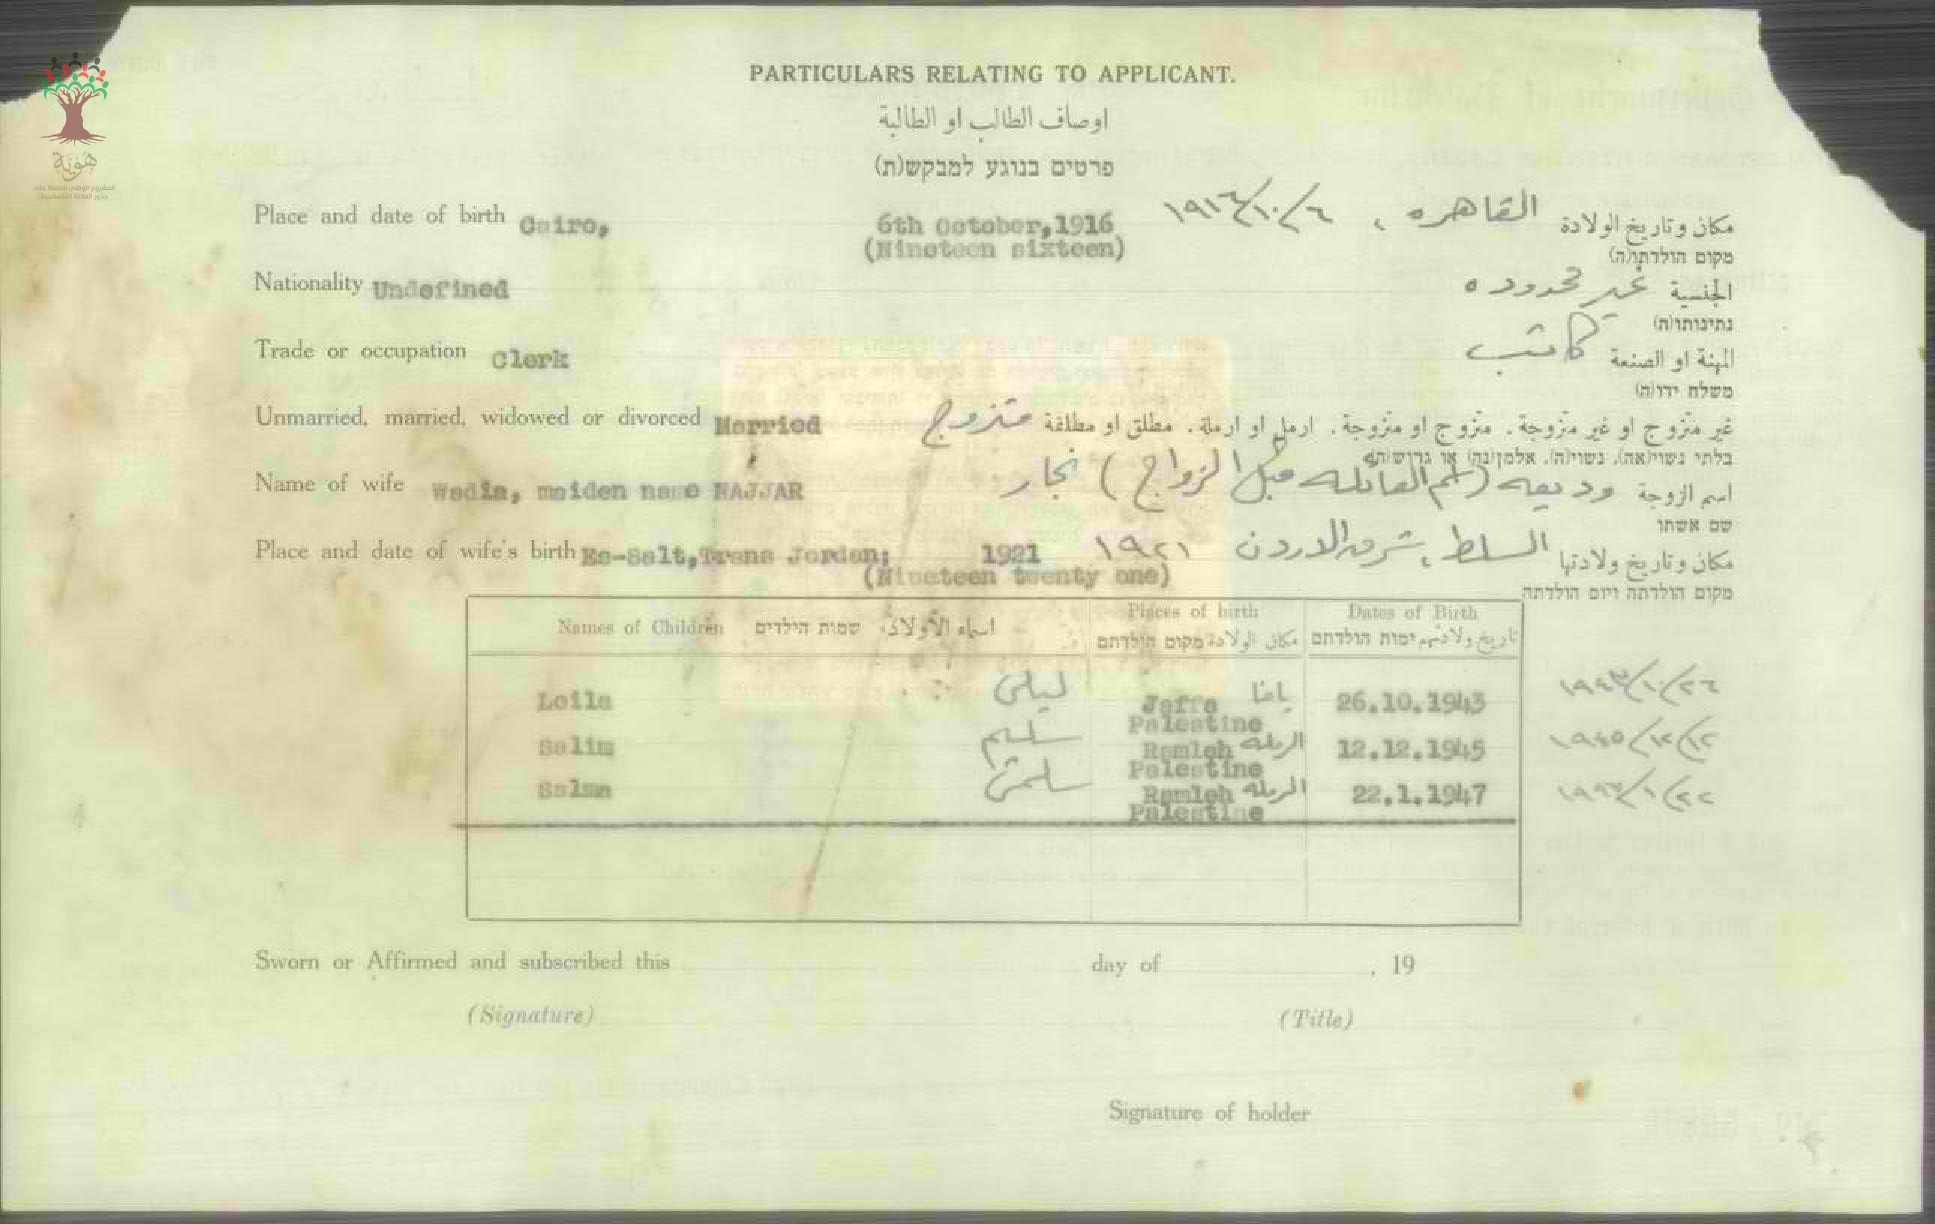 PARTICULARS RELATING TO APPLICANT.
اوصاف الطالب او الطالبة
פרטים בנוגע למבקש(ת)
هُويَّة
المشروع الوطني للحفاظ على
جذور العائلة الفلسطينية
Place and date of birth Cairo, 6th October,1916 القاهره ، ١٩١٦/١٠/٦ مكان وتاريخ الولادة
(Nineteen sixteen)
מקום הולדתו(ה)
Nationality Undefined غير محدوده الجنسية
נתינותו(ה)
Trade or occupation Clerk كاتب المهنة او الصنعة
משלח ידו(ה)
Unmarried, married, widowed or divorced Married متزوج غير متزوج او غير متزوجة . متزوج او متزوجة . ارمل او ارملة . مطلق او مطلقة
בלתי נשוי(אה), נשוי(ה), אלמן(נה) או גרוש(ה)
Name of wife Wadia, maiden name NAJJAR وديعه (اسم العائله قبل الزواج) نجار اسم الزوجة
שם אשתו
Place and date of wife's birth Es-Salt,Trans Jordan; 1921 السلط ، شرق الاردن ١٩٢١ مكان وتاريخ ولادتها
(Nineteen twenty one)
מקום הולדתה ויום הולדתה
Names of Children שמות הילדים اسماء الأولاد Places of birth Dates of Birth
מקום הולדתם مكان الولادة ימות הולדתם تاريخ ولادتهم
Leila ليلى Jaffa يافا 26.10.1943 ١٩٤٣/١٠/٢٦
Palestine
Salim سليم Ramleh الرمله 12.12.1945 ١٩٤٥/١٢/١٢
Palestine
Salma سلمى Ramleh الرمله 22.1.1947 ١٩٤٧/١/٢٢
Palestine
Sworn or Affirmed and subscribed this day of , 19
(Signature) (Title)
Signature of holder